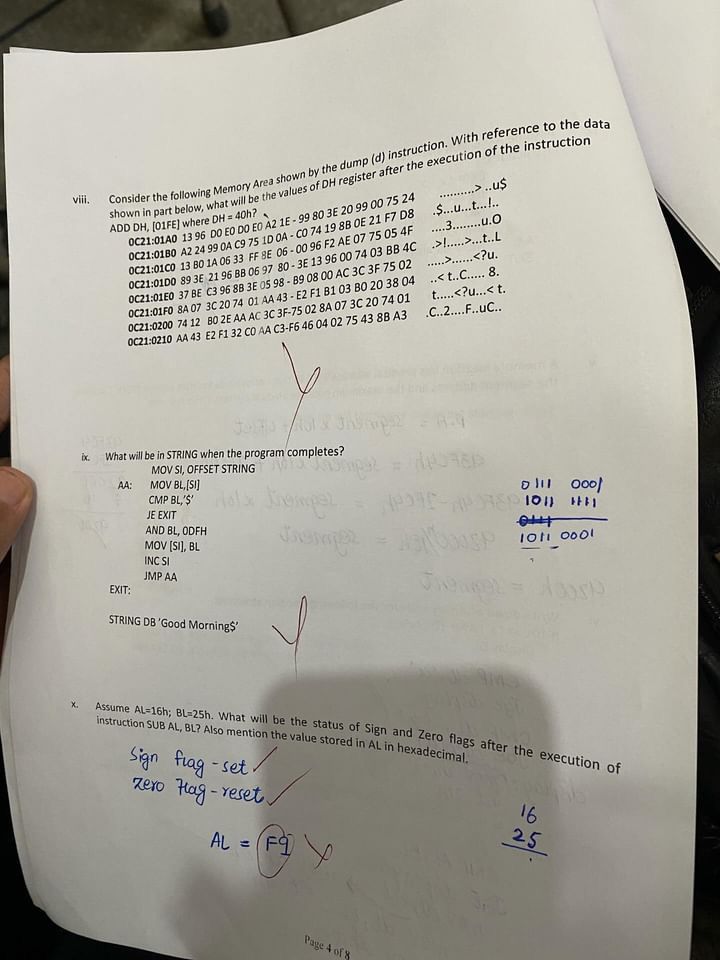 viii. Consider the following Memory Area shown by the dump (d) instruction. With reference to the data
shown in part below, what will be the values of DH register after the execution of the instruction
ADD DH, [01FE] where DH = 40h?
0C21:01A0 13 96 D0 E0 D0 E0 A2 1E - 99 80 3E 20 99 00 75 24 ..........> ..u$
0C21:01B0 A2 24 99 0A C9 75 1D 0A - C0 74 19 8B 0E 21 F7 D8 .$...u...t...!..
0C21:01C0 13 B0 1A 06 33 FF 8E 06 - 00 96 F2 AE 07 75 05 4F ....3........u.O
0C21:01D0 89 3E 21 96 BB 06 97 80 - 3E 13 96 00 74 03 BB 4C .>!.....>...t..L
0C21:01E0 37 BE C3 96 8B 3E 05 98 - B9 08 00 AC 3C 3F 75 02 .....>......<?u.
0C21:01F0 8A 07 3C 20 74 01 AA 43 - E2 F1 B1 03 B0 20 38 04 ..< t..C..... 8.
0C21:0200 74 12 B0 2E AA AC 3C 3F-75 02 8A 07 3C 20 74 01 t.....<?u...< t.
0C21:0210 AA 43 E2 F1 32 C0 AA C3-F6 46 04 02 75 43 8B A3 .C..2....F..uC..
ix. What will be in STRING when the program completes?
MOV SI, OFFSET STRING
AA: MOV BL,[SI]
CMP BL,'$'
JE EXIT
AND BL, 0DFH
MOV [SI], BL
INC SI
JMP AA
EXIT:
STRING DB 'Good Morning$'
0111 0001
1011 1111
0111
1011 0001
x. Assume AL=16h; BL=25h. What will be the status of Sign and Zero flags after the execution of
instruction SUB AL, BL? Also mention the value stored in AL in hexadecimal.
Sign flag - set
Zero flag - reset
AL = F9
16
25
Page 4 of 8